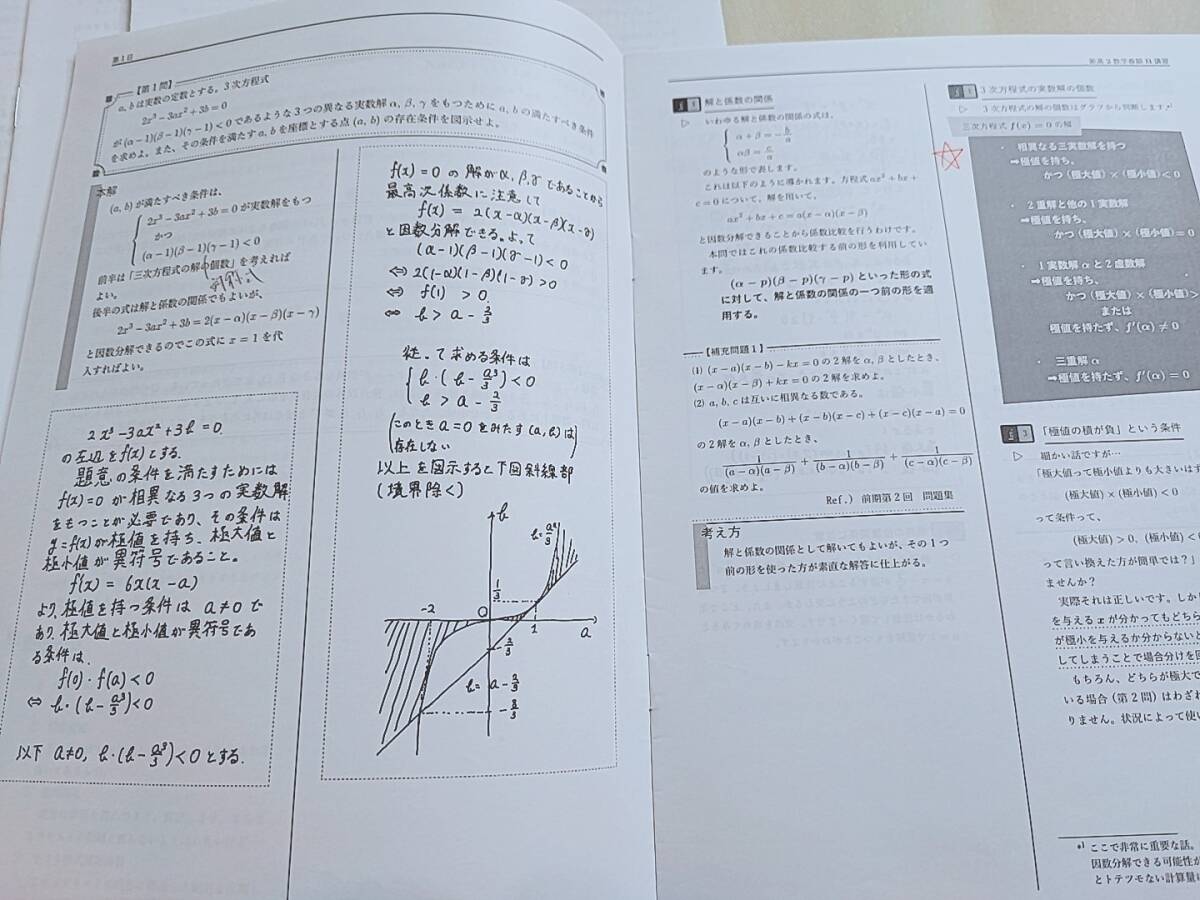 第1日
【第1問】
a, bは実数の定数とする。3次方程式
2x³−3ax²+3b=0
が(α−1)(β−1)(γ−1)<0であるような3つの異なる実数解α, β, γをもつためにa, bの満たすべき条件
を求めよ。また、その条件を満たすa, bを座標とする点(a, b)の存在条件を図示せよ。
本解
(a, b)が満たすべき条件は、
2x³−3ax²+3b=0が実数解をもつ
かつ
(α−1)(β−1)(γ−1)<0
前半は「三次方程式の解の個数」を考えれば
よい。
後半の式は解と係数の関係でもよいが、
2x³−3ax²+3b=2(x−α)(x−β)(x−γ)
と因数分解できるのでこの式にx=1を代
入すればよい。
2x³−3ax²+3b=0.
の左辺をf(x)とする.
題意の条件を満たすためには
f(x)=0が相異なる3つの実数解
をもつことが必要であり、その条件は
y=f(x)が極値を持ち、極大値と
極小値が異符号であること。
f'(x)=6x(x−a)
より、極値を持つ条件はa≠0で
あり、極大値と極小値が異符号であ
る条件は、
f(0)・f(a)<0
⇔ b・(b−a³/3)<0
以下 a≠0, b・(b−a³/3)<0とする.
f(x)=0の解がα,β,γであることから
最高次係数に注意して
f(x)=2(x−α)(x−β)(x−γ)
と因数分解できる。よって
(α−1)(β−1)(γ−1)<0
⇔ 2(1−α)(1−β)(1−γ)>0
⇔ f(1)>0.
⇔ b>a−2/3
従って求める条件は
b・(b−a³/3)<0
b>a−2/3
(このときa=0をみたす(a,b)は
存在しない)
以上を図示すると下図斜線部
(境界除く)
b
b=a³/3
1/3
−2
O
1
a
−2/3
b=a−2/3
−8/3
新高2数学春期H講習
1 解と係数の関係
▷ いわゆる解と係数の関係の式は、
α+β=−b/a
αβ=c/a
のような形で表します。
これは以下のように導かれます。方程式ax²+bx+
c=0について、解を用いて、
ax²+bx+c=a(x−α)(x−β)
と因数分解できることから係数比較を行うわけです。
本問ではこれの係数比較する前の形を利用してい
ます。
(α−p)(β−p)(γ−p)といった形の式
に対して、解と係数の関係の一つ前の形を適
用する。
【補充問題1】
(1) (x−a)(x−b)−kx=0の2解をα, βとしたとき、
(x−α)(x−β)+kx=0の2解を求めよ。
(2) a, b, cは互いに相異なる数である。
(x−a)(x−b)+(x−b)(x−c)+(x−c)(x−a)=0
の2解をα, βとしたとき、
1/(a−α)(a−β)+1/(b−α)(b−β)+1/(c−α)(c−β)
の値を求めよ。
Ref.) 前期第2回 問題集
考え方
解と係数の関係として解いてもよいが、その1つ
前の形を使った方が素直な解答に仕上がる。
3次方程式の実数解の係数
▷ 3次方程式の解の個数はグラフから判断します
三次方程式f(x)=0の解
・ 相異なる三実数解を持つ
⇒極値を持ち、
かつ(極大値)×(極小値)<0
・ 2重解と他の1実数解
⇒極値を持ち、
かつ(極大値)×(極小値)=0
・ 1実数解αと2虚数解
⇒極値を持ち、
かつ(極大値)×(極小値)>
または
極値を持たず、f'(α)≠0
・ 三重解α
⇒極値を持たず、f'(α)=0
「極値の積が負」という条件
▷ 細かい話ですが…
「極大値って極小値よりも大きいはず
(極大値)×(極小値)<0
って条件って、
(極大値)>0, (極小値)<
って言い換えた方が簡単では?」
ませんか?
実際それは正しいです。しかし
を与えるxが分かってもどちら
が極小を与えるか分からない
してしまうことで場合分けを回
もちろん、どちらが極大で
いる場合(第2問)はわざわ
りません。状況によって使い
ここで非常に重要な話。
因数分解できる可能性が
とトテツモない計算量に